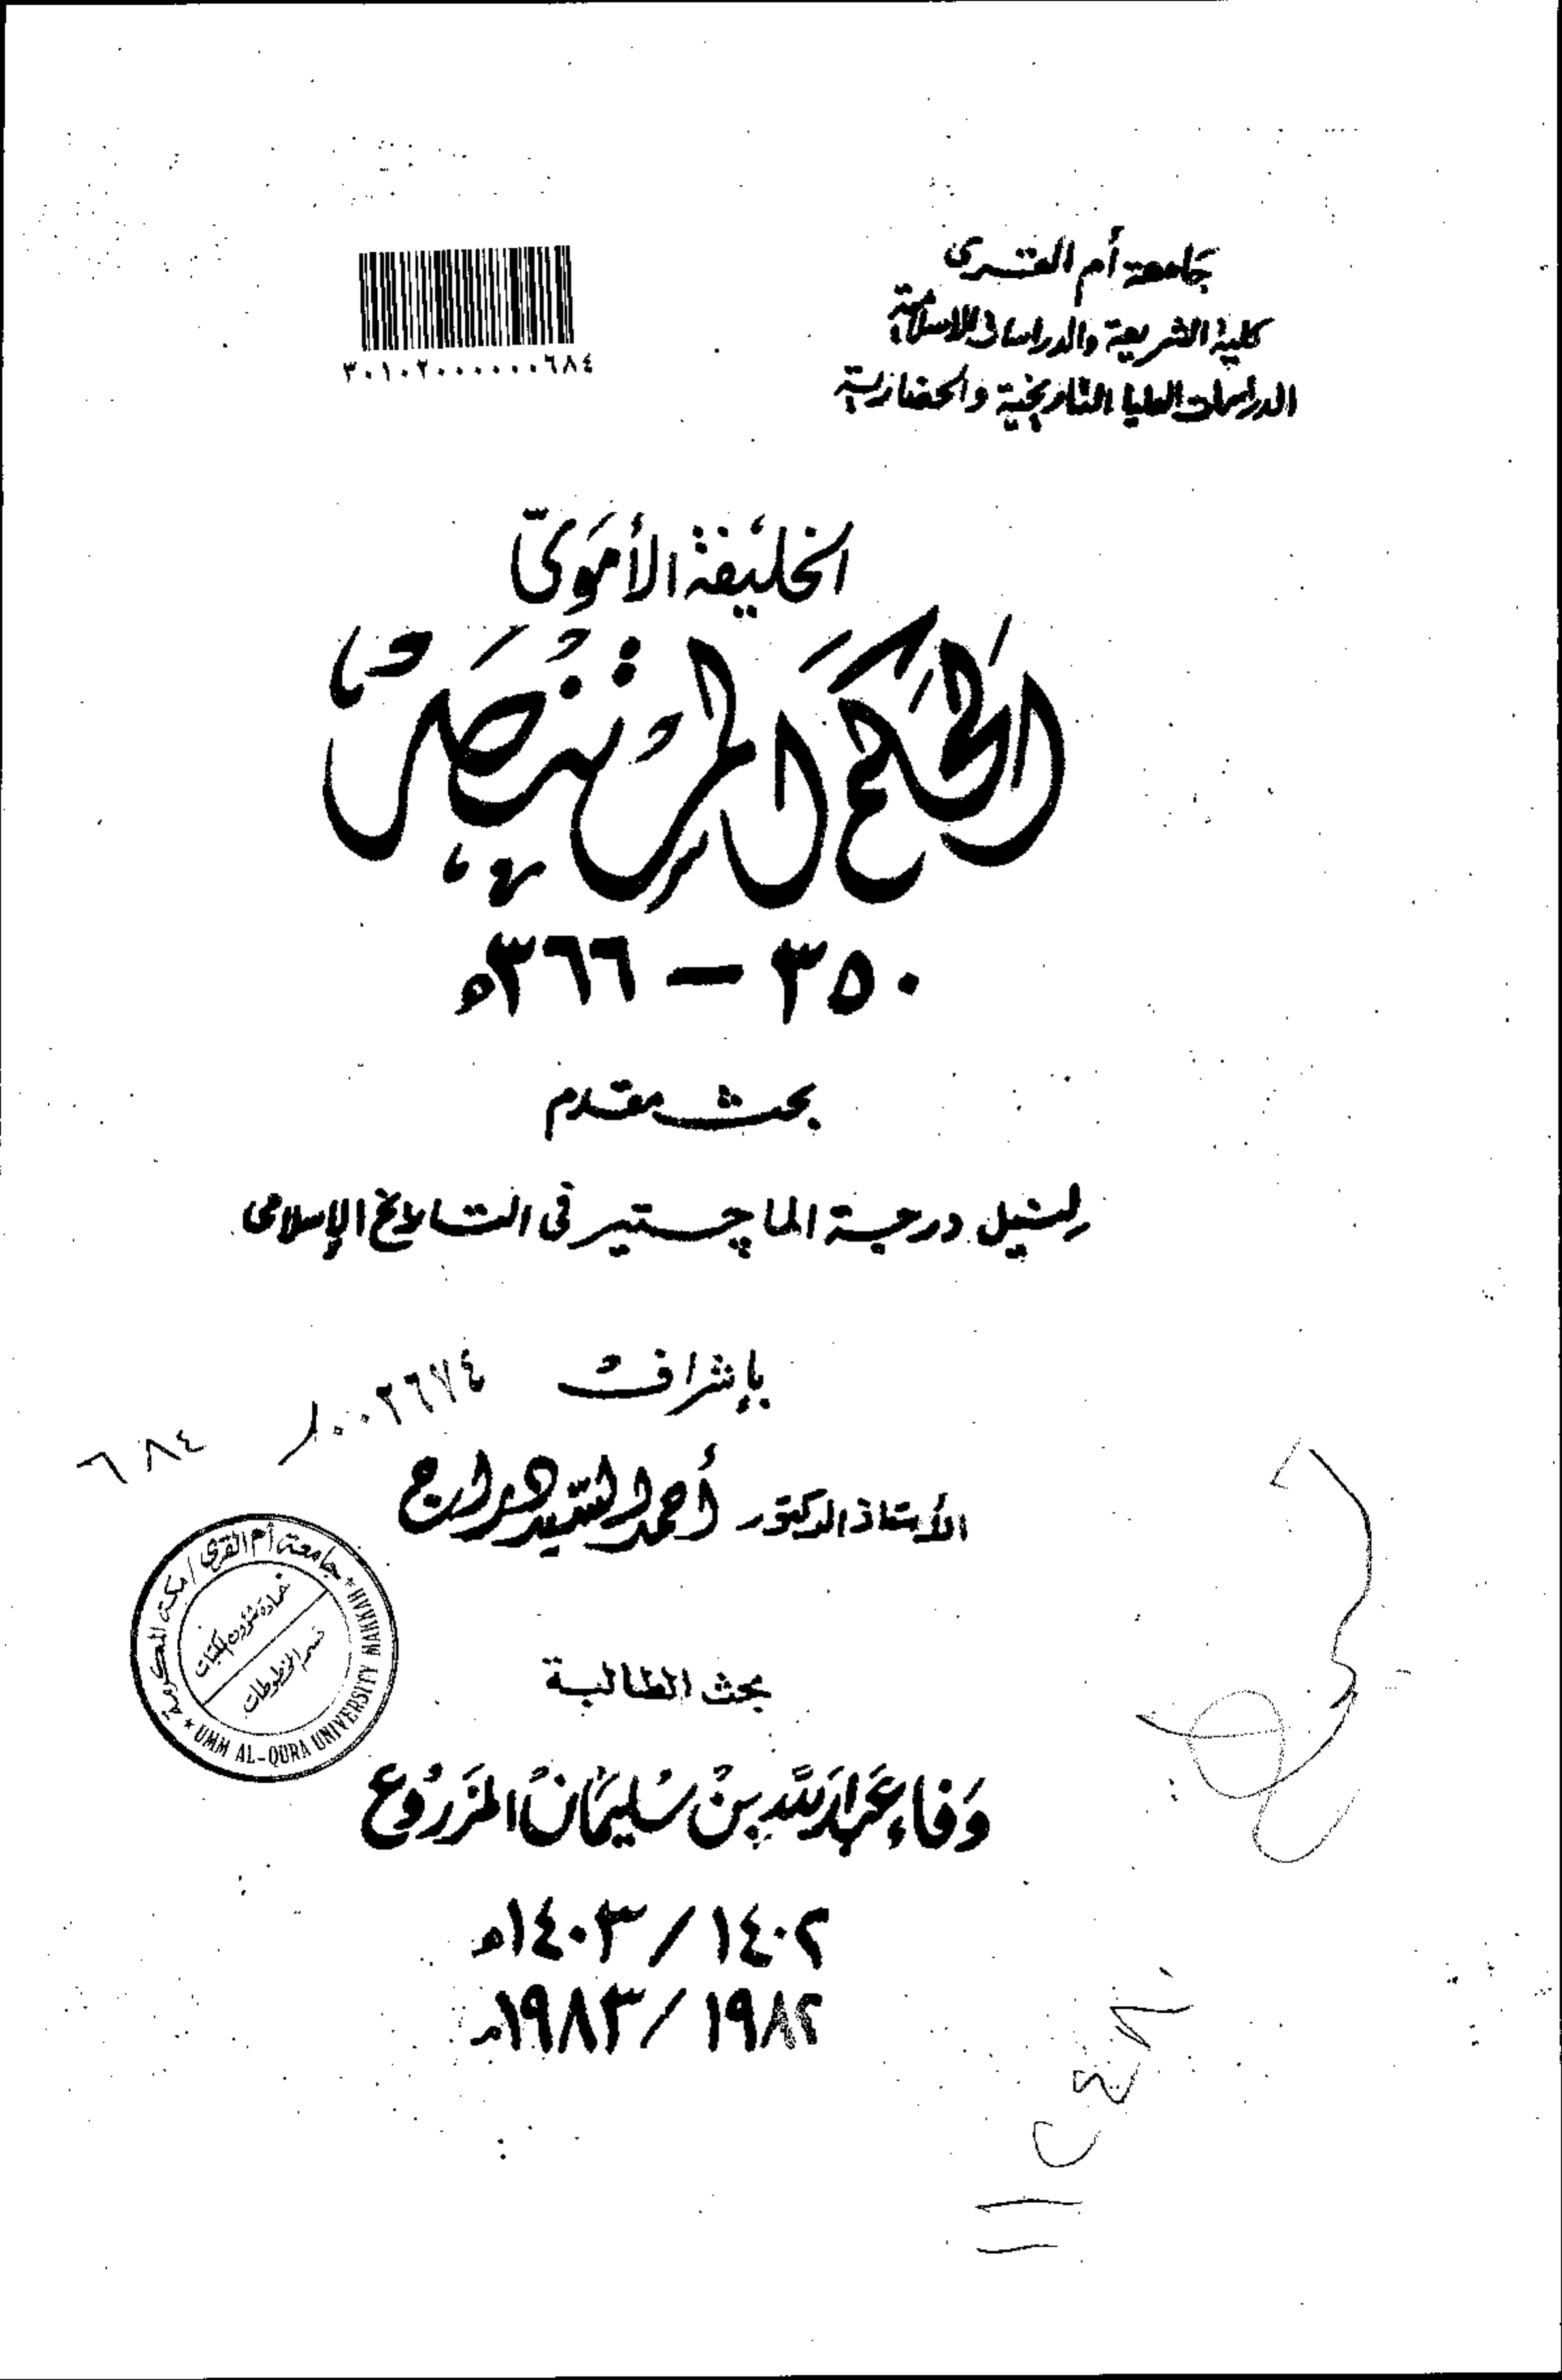 جامعة أم القرى
كلية الشريعة والدراسات الاسلامية
الدراسات العليا التاريخية والحضارية
٣٠١٠٢٠٠٠٠٠٠٦٨٤
الخليفة الأموي
الحكم المستنصر
٣٥٠ - ٣٦٦ه
بحث مقدم
لنيل درجة الماجستير في التاريخ الإسلامى
بإشراف
١٠٠٢٦٧٤
٦٨٤
الأستاذ الدكتور أحمد السيد دراج
جامعة أم القرى / مكة المكرمة
عمادة شؤون المكتبات
قسم المخطوطات
UMM AL-QURA UNIVERSITY MAKKAH
بحث الطالبة
وفاء عبد الله بن سليمان المزروع
١٤٠٢/١٤٠٣ه
١٩٨٢/١٩٨٣م